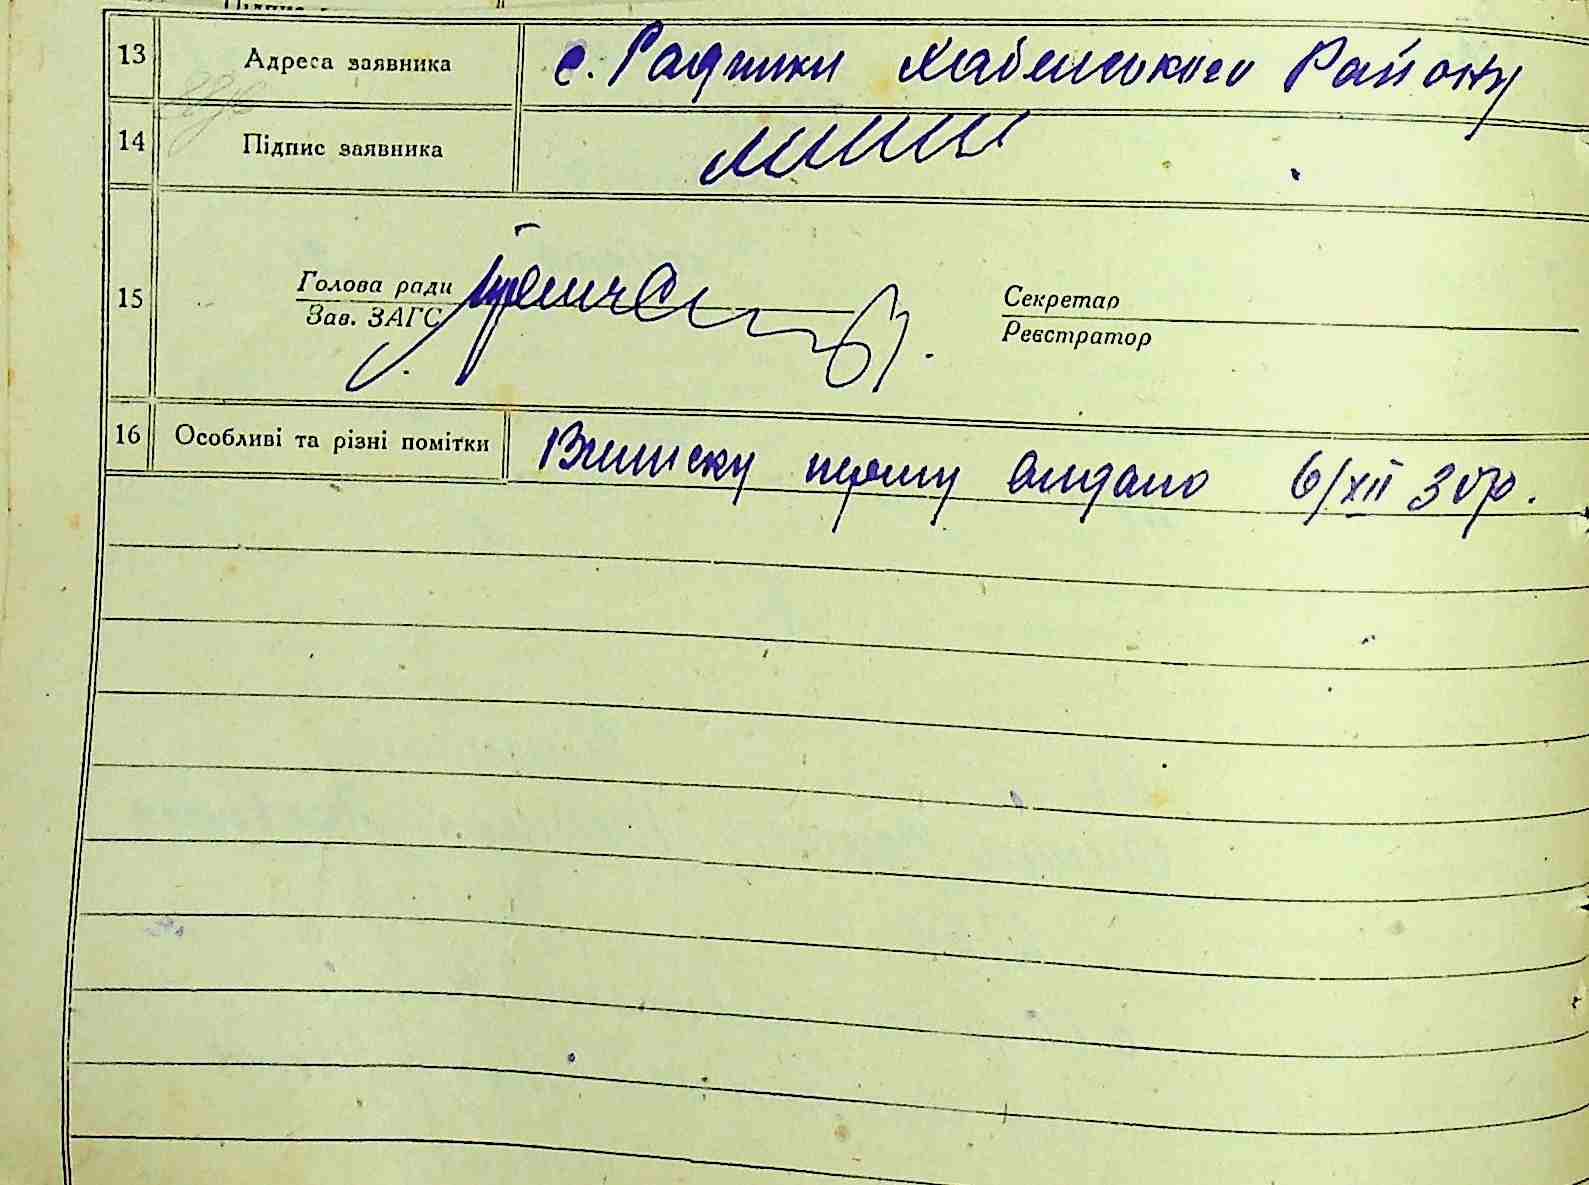 13 Адреса заявника с. Радинки Хабенського Району
14 Підпис заявника
15 Голова ради Секретар
Зав. ЗАГС Реєстратор
16 Особливі та різні помітки Виписку першу видано 6/XII 30р.